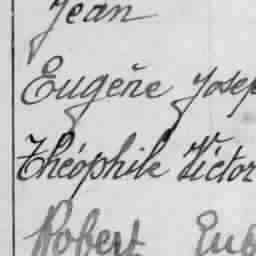 Jean
Eugène Josep
Théophile Victor
Robert Eug